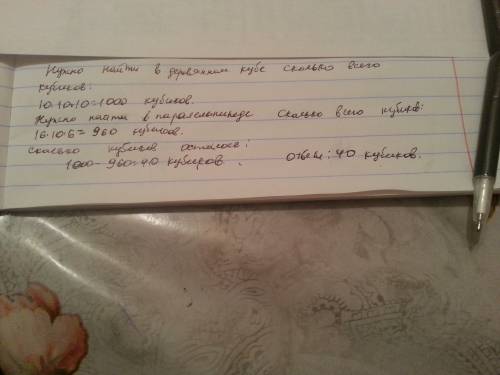 Нужно найти в деревянном кубе сколько всего
кубиков:
10·10·10=1000 кубиков.
Нужно найти в паралелепипеде сколько всего кубиков:
16·10·6=960 кубиков.
сколько кубиков осталось:
1000-960=40 кубиков. Ответ: 40 кубиков.